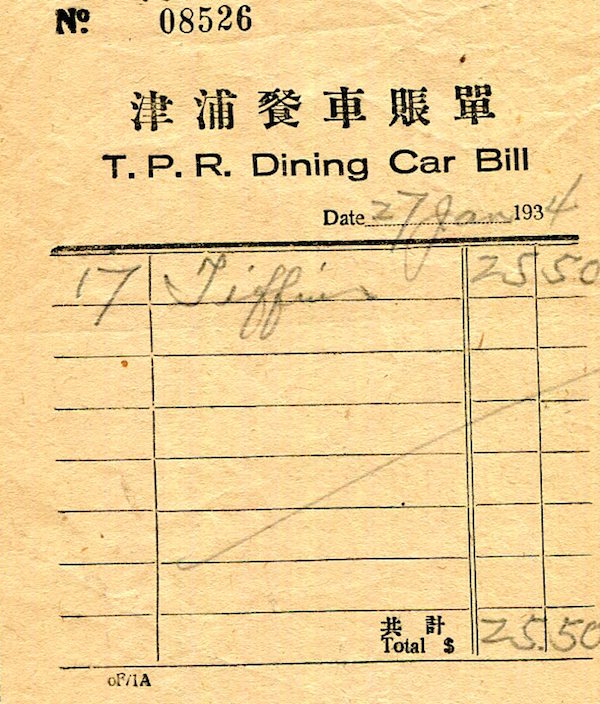 Nº 08526
津浦餐車賬單
T. P. R. Dining Car Bill
Date 27 Jan 1934
17 Tiffins 25 50
共計
Total $ 25.50
oF/1A